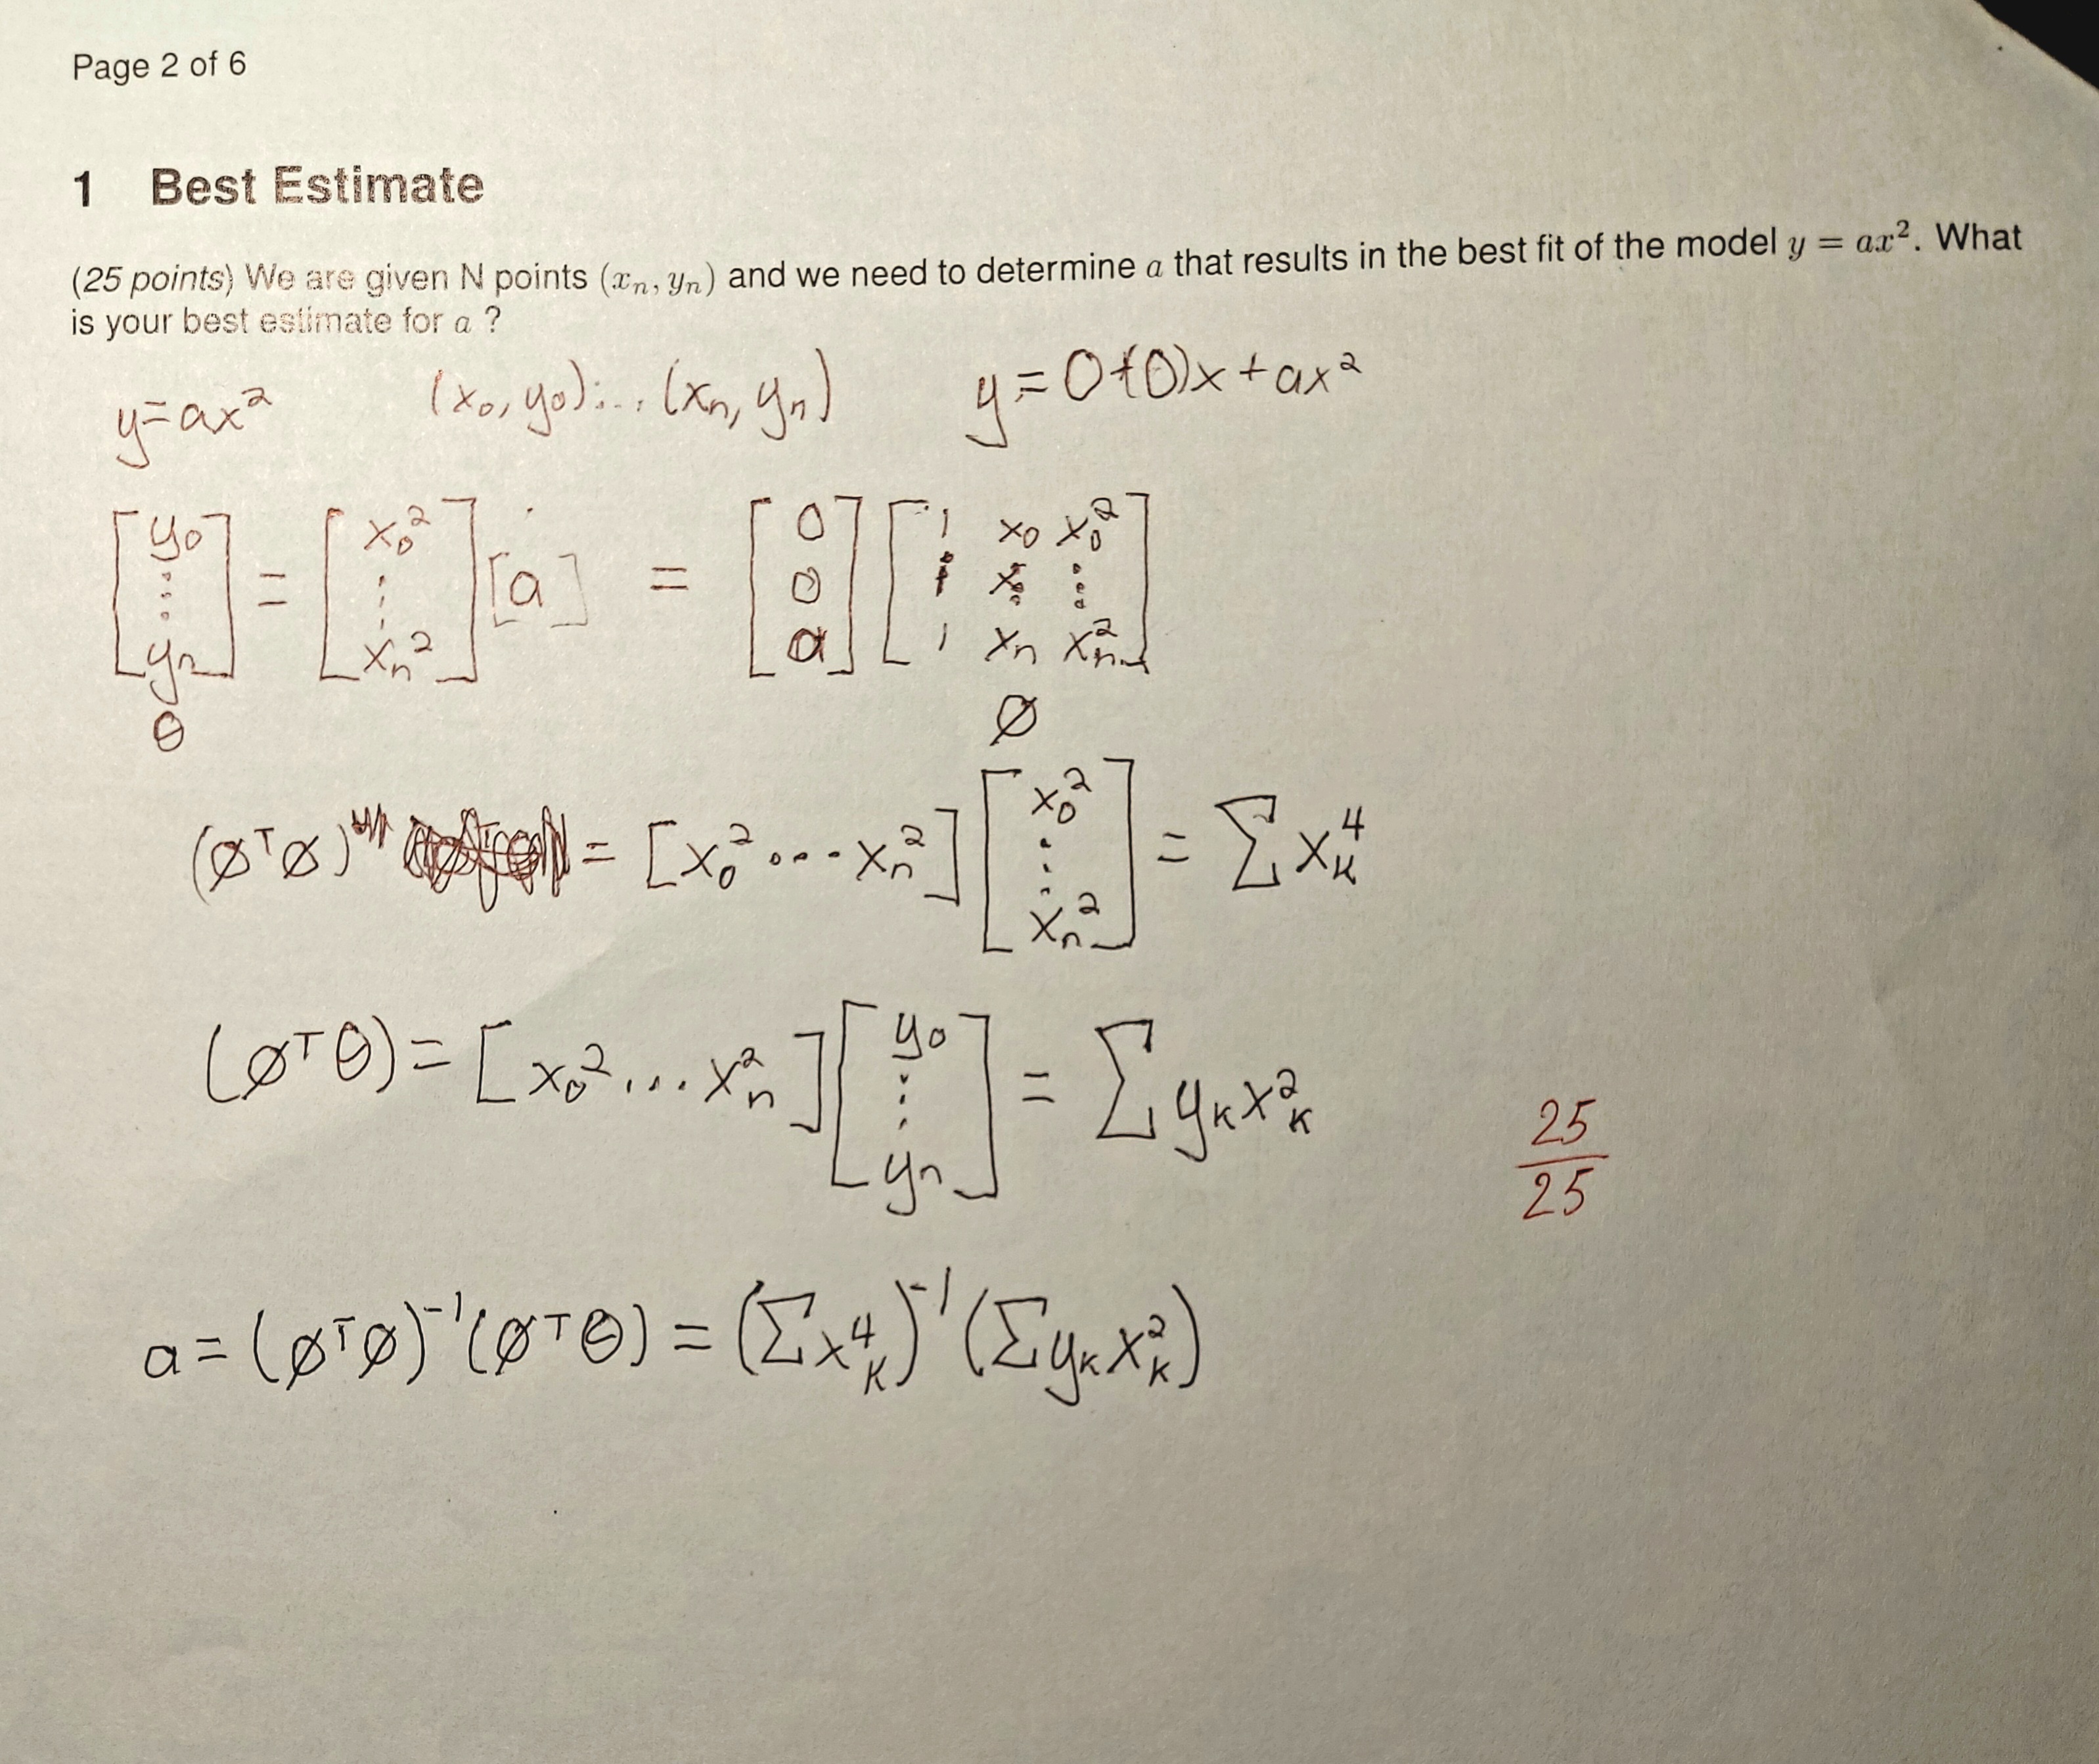 Page 2 of 6
1 Best Estimate
(25 points) We are given N points (xₙ, yₙ) and we need to determine a that results in the best fit of the model y = ax². What
is your best estimate for a ?
y=ax² (x₀, y₀)... (xₙ, yₙ) y=0+(0)x+ax²
[y₀ ⋮ yₙ] = [x₀² ⋮ xₙ²] [a] = [0 0 a] [1 x₀ x₀² ⋮ ⋮ ⋮ 1 xₙ xₙ²]
θ ∅
(∅ᵀ∅) = [x₀² ... xₙ²] [x₀² ⋮ xₙ²] = Σ xₖ⁴
(∅ᵀθ) = [x₀² ... xₙ²] [y₀ ⋮ yₙ] = Σ yₖxₖ²
25/25
a = (∅ᵀ∅)⁻¹(∅ᵀθ) = (Σxₖ⁴)⁻¹(Σyₖxₖ²)